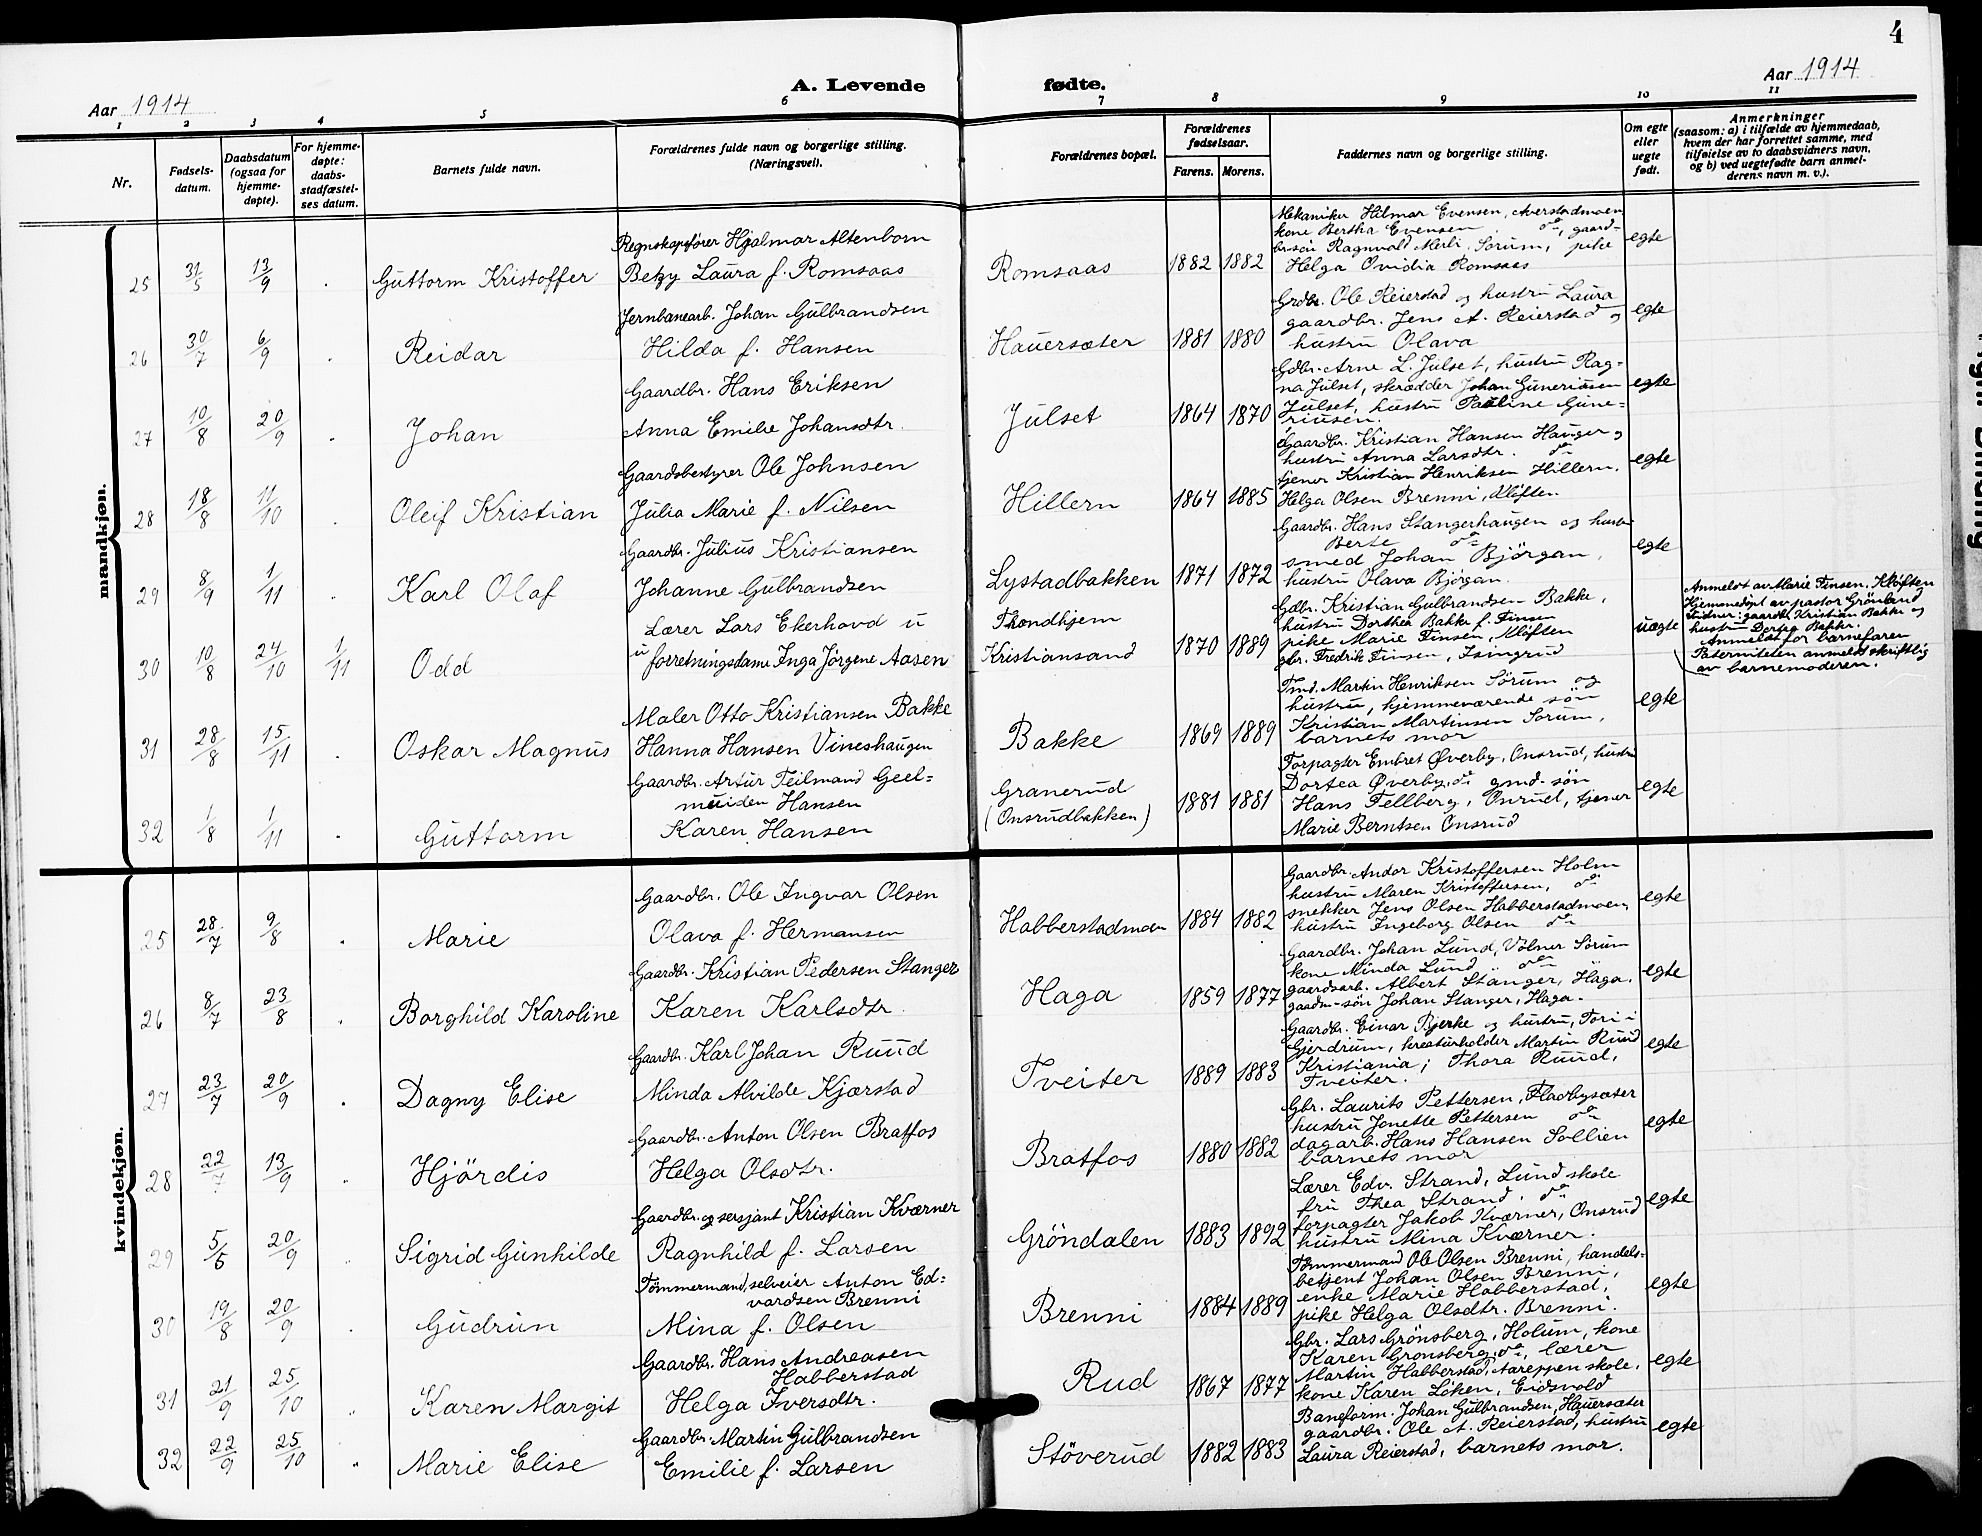 4
Aar 1914
A. Levende fødte.
Aar 1914
1 2 3 4 5 6 7 8 9 10 11
Nr.
Fødsels-
datum.
Daabsdatum
(ogsaa for
hjemme-
døpte).
For hjemme-
døpte:
daabs-
stadfæstel-
ses datum.
Barnets fulde navn.
Forældrenes fulde navn og borgerlige stilling.
(Næringsvei).
Forældrenes bopæl.
Forældrenes
fødselsaar.
Farens. Morens.
Faddernes navn og borgerlige stilling.
Om egte
eller
uegte
født.
Anmerkninger
(saasom: a) i tilfælde av hjemmedaab,
hvem der har forrettet samme, med
tilføielse av to daabsvidners navn,
og b) ved uegtefødte barn anmel-
derens navn m. v.).
mandkjøn.
25 31/5 13/9 Guttorm Kristoffer
Regnskapsfører Hjalmar Altenborn
Betzy Laura f. Romsaas
Romsaas 1882 1882
Mekaniker Hilmar Evensen, Averstadmoen
kone Bertha Evensen do, gaard-
br.søn Ragnvald Merli, Sørum, pike
Helga Ovidia Romsaas
egte
26 30/7 6/9 Reidar
Jernbanearb. Johan Gulbrandsen
Hilda f. Hansen
Hauersæter 1881 1880
Grdbr. Ole Reierstad og hustru Laura
gaardbr. Jens A. Reierstad og
hustru Olava
egte
27 10/8 20/9 Johan
Gaardbr. Hans Eriksen
Anna Emilie Johansdtr.
Julset 1864 1870
Gdbr. Arne L. Julset, hustru Rag-
na Julset, skrædder Johan Guneriussen
Julset, hustru Pauline Gune-
riusen.
egte
28 18/8 11/10 Oleif Kristian
Gaardsbestyrer Ole Johnsen
Julia Marie f. Nilsen
Hillern 1864 1885
Gaardbr. Kristian Hansen Hauger og
hustru Anna Larsdtr. do
tjener Kristian Henriksen Hillern.
Helga Olsen Brenni, Kløften
egte
29 8/9 1/11 Karl Olaf
Gaardbr. Julius Kristiansen
Johanne Gulbrandsen
Lystadbakken 1871 1872
Gaardbr. Hans Stangerhaugen og hustru
Berte do
smed Johan Bjørgan,
hustru Olava Bjørgan.
egte
30 10/8 24/10 1/11 Odd
Lærer Lars Ekerhovd u
u forretningsdame Inga Jørgene Aasen
Trondhjem
Kristiansand 1870 1889
Gdbr. Kristian Gulbrandsen Bakke,
hustru Dorthea Bakke f. Finsen
pike Marie Finsen, Kløften
gbr. Fredrik Finsen, Isingrud
uegte
Anmeldt av Marie Finsen, Kløften
Hjemmedøpt av pastor Grønland
Vidner: gaardbr. Kristian Bakke og
hustru Dortea Bakke.
Anmeldt for barnefaren
Paterniteten anmeldt skriftlig
av barnemoderen.
31 28/8 15/11 Oskar Magnus
Maler Otto Kristiansen Bakke
Hanna Hansen Vineshaugen
Bakke 1869 1889
Tmd. Martin Henriksen Sørum og
hustru, hjemmeværende søn
Kristian Martinsen Sørum,
barnets mor
egte
32 1/8 1/11 Guttorm
Gaardbr. Artur Teilmand Geel-
muiden Hansen
Karen Hansen
Granerud
(Onsrudbakken) 1881 1881
Forpagter Embret Øverby, Onsrud, hustru
Dortea Øverby, do gmd. søn
Hans Fellberg, Onrud, tjener
Marie Berntsen Onsrud
egte
kvindekjøn.
25 28/7 9/8 Marie
Gaardbr. Ole Ingvar Olsen
Olava f. Hermansen
Habberstadmoen 1884 1882
Gaardbr. Andor Kristoffersen Holm
hustru Maren Kristoffersen, do
snekker Jens Olsen Habberstadmoen,
hustru Ingeborg Olsen do
egte
26 8/7 23/8 Borghild Karoline
Gaardbr. Kristian Pedersen Stanger
Karen Karlsdtr.
Haga 1859 1877
Gaardbr. Johan Lund, Vølner Sørum
kone Minda Lund do
gaardsarb. Albert Stanger, Haga,
gaardm.-søn Johan Stanger, Haga.
egte
27 23/7 20/9 Dagny Elise
Gaardbr. Karl Johan Ruud
Minda Alvilde Kjærstad
Tveiter 1889 1883
Gaardbr. Einar Bjerke og hustru, Tori i
Gjerdrum, kreaturholder Martin Ruud
Kristiania; Thora Ruud,
Tveiter.
egte
28 22/7 13/9 Hjördis
Gaardbr. Anton Olsen Bratfos
Helga Olsdtr.
Bratfos 1880 1882
Gbr. Laurits Pettersen, Fladbysæter
hustru Jonette Pettersen do
dagarb. Hans Hansen Sollien
barnets mor
egte
29 5/5 20/9 Sigrid Gunhilde
Gaardbr. og sersjant Kristian Kværner
Ragnhild f. Larsen
Gröndalen 1883 1892
Lærer Edv. Strand, Lund skole
fru Thea Strand, do
forpagter Jakob Kværner, Onsrud
hustru Mina Kværner.
egte
30 19/8 20/9 Gudrun
Tömmermand, selveier Anton Ed-
vardsen Brenni
Mina f. Olsen
Brenni 1884 1889
Tömmermand Ole Olsen Brenni, handels-
betjent Johan Olsen Brenni,
enke Marie Habberstad,
pike Helga Olsdtr. Brenni.
egte
31 21/9 25/10 Karen Margit
Gaardbr. Hans Andreasen
Habberstad
Helga Iversdtr.
Rud 1867 1877
Gbr. Lars Grønsberg, Holum, kone
Karen Grønsberg, do, lærer
Martin Habberstad, Aareppen skole,
kone Karen Løken, Eidsvold
egte
32 22/9 25/10 Marie Elise
Gaardbr. Martin Gulbrandsen
Emilie f. Larsen
Støverud 1882 1883
Baneform. Johan Gulbrandsen, Hauersæter
gaardbr. Ole A. Reierstad, hustru
Laura Reierstad, barnets mor.
egte